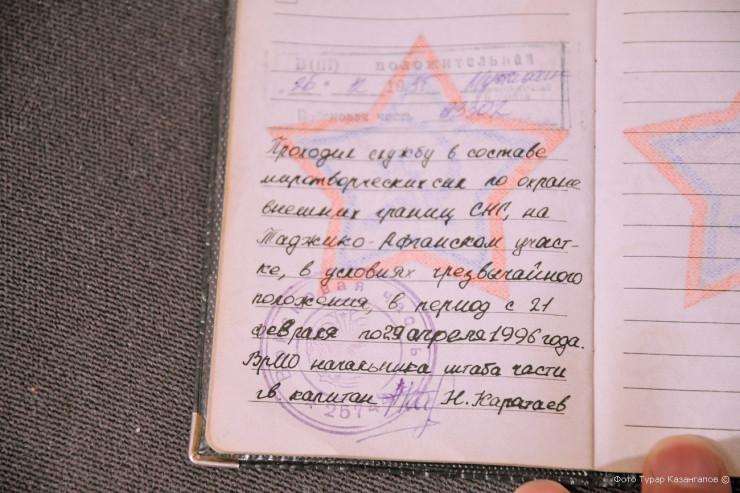 В(Ш) положительная
"26" 19
Войсковая часть
Проходил службу в составе
миротворческих сил по охране
внешних границ СНГ, на
Таджико-Афганском участ-
ке, в условиях чрезвычайного
положения, в период с 21
февраля по 29 апреля 1996 года.
ВрИО начальника штаба части
гв. капитан Н. Каратаев
Фото Турар Казангапов ©